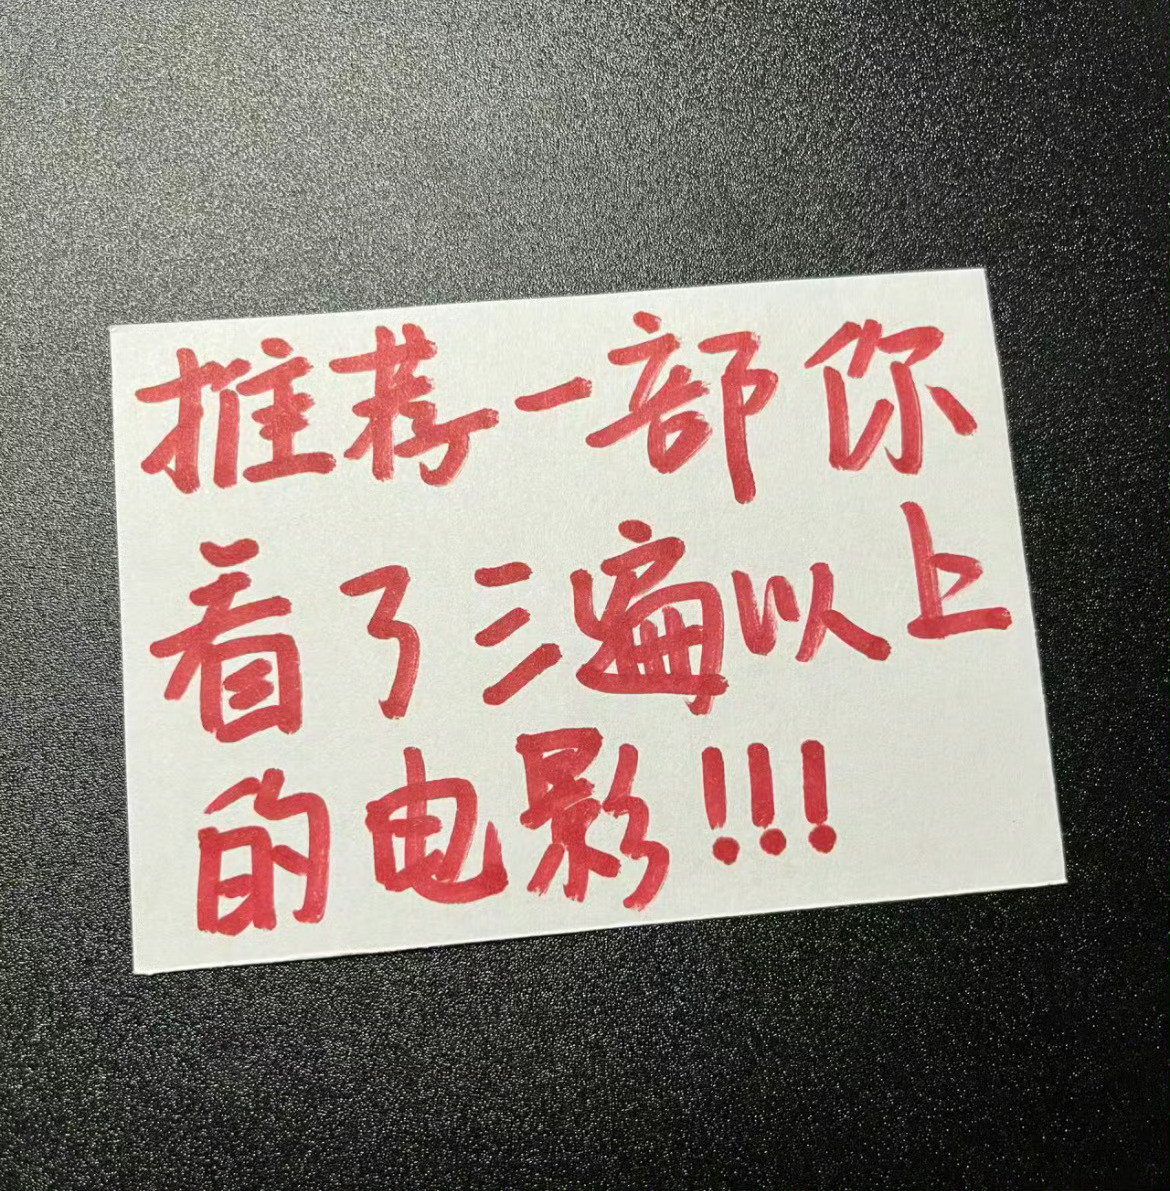 推荐一部你
看了三遍以上
的电影!!!